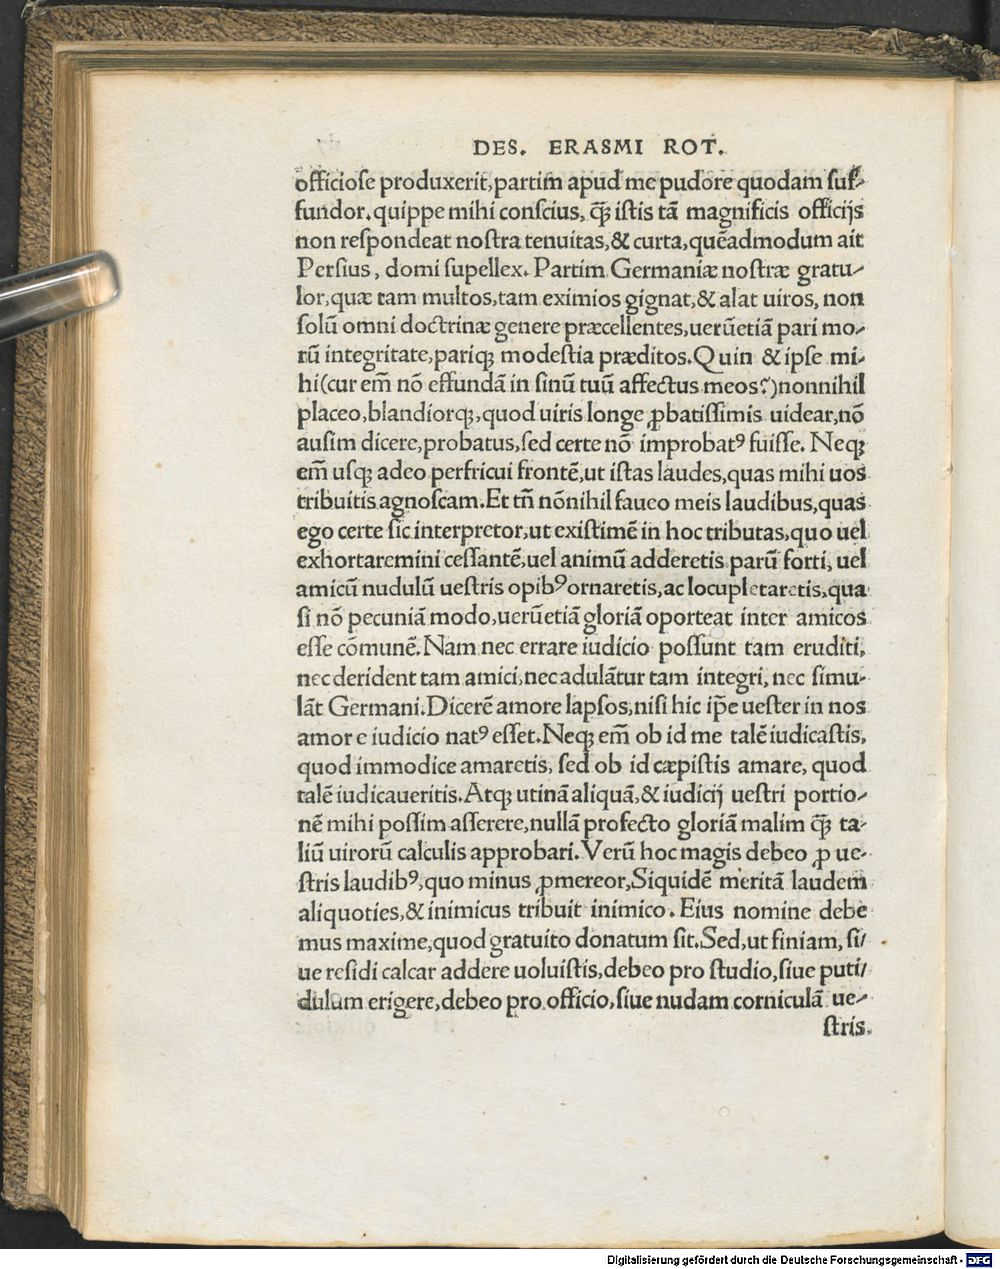 DES. ERASMI ROT.
officiose produxerit, partim apud me pudore quodam suf-
fundor, quippe mihi conscius, q̃ istis tã magnificis officijs
non respondeat nostra tenuitas, & curta, quẽadmodum ait
Persius, domi supellex. Partim Germaniæ nostræ gratu-
lor, quæ tam multos, tam eximios gignat, & alat uiros, non
solũ omni doctrinæ genere præcellentes, uerũetiã pari mo-
rũ integritate, pariqꝫ modestia præditos. Quin & ipse mi-
hi (cur em̃ nõ effundã in sinũ tuũ affectus meos?) nonnihil
placeo, blandiorqꝫ, quod uiris longe ꝓbatissimis uidear, nõ
ausim dicere, probatus, sed certe nõ improbatꝰ fuisse. Neqꝫ
em̃ usqꝫ adeo perfricui frontẽ, ut istas laudes, quas mihi uos
tribuitis agnoscam. Et tñ nõnihil faueo meis laudibus, quas
ego certe sic interpretor, ut existimẽ in hoc tributas, quo uel
exhortaremini cessantẽ, uel animũ adderetis parũ forti, uel
amicũ nudulũ uestris opibꝰ ornaretis, ac locupletaretis, qua
si nõ pecuniã modo, uerũetiã gloriã oporteat inter amicos
esse cõmunẽ. Nam nec errare iudicio possunt tam eruditi,
nec derident tam amici, nec adulãtur tam integri, nec simu-
lãt Germani. Dicerẽ amore lapsos, nisi hic ip̃e uester in nos
amor e iudicio natꝰ esset. Neqꝫ em̃ ob id me talẽ iudicastis,
quod immodice amaretis, sed ob id cæpistis amare, quod
talẽ iudicaueritis. Atqꝫ utinã aliquã, & iudicij uestri portio-
nẽ mihi possim asserere, nullã profecto gloriã malim q̃ ta-
liũ uirorũ calculis approbari. Verũ hoc magis debeo ꝓ ue-
stris laudibꝰ, quo minus ꝓmereor, Siquidẽ meritã laudem
aliquoties, & inimicus tribuit inimico. Eius nomine debe
mus maxime, quod gratuito donatum sit. Sed, ut finiam, si-
ue residi calcar addere uoluistis, debeo pro studio, siue puti-
dulum erigere, debeo pro officio, siue nudam corniculã ue-
stris.
Digitalisierung gefördert durch die Deutsche Forschungsgemeinschaft - DFG